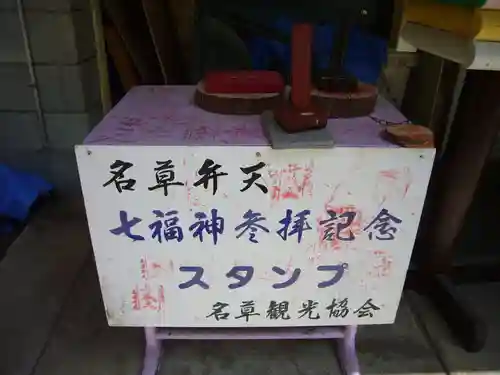 名草弁天
七福神参拝記念
スタンプ
名草観光協会